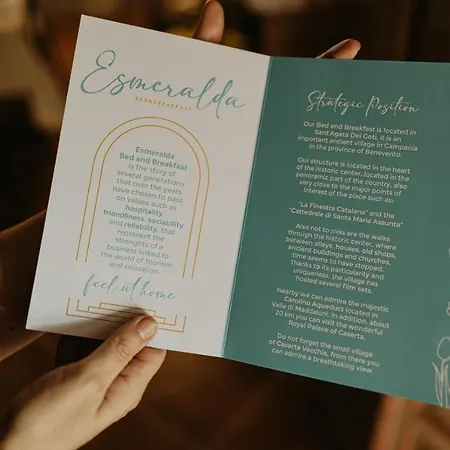 Esmeralda
BED&BREAKFAST
Esmeralda
Bed and Breakfast
is the story of
several generations
that over the years
have chosen to pass
on values such as
hospitality,
friendliness, sociability
and reliability, that
represent the
strengths of a
business linked to
the world of tourism
and relaxation.
feel at home
Strategic Position
Our Bed and Breakfast is located in
Sant'Agata Dei Goti, it is an
important ancient village in Campania
in the province of Benevento.
Our structure is located in the heart
of the historic center, located in the
panoramic part of the country, also
very close to the major points of
interest of the place such as:
"La Finestra Catalana" and the
"Cattedrale di Santa Maria Assunta"
Also not to miss are the walks
through the historic center, where
between alleys, houses, old shops,
ancient buildings and churches,
time seems to have stopped.
Thanks to its particularity and
uniqueness, the village has
hosted several film sets.
Nearby we can admire the majestic
Carolino Aqueduct located in
Valle di Maddaloni. In addition, about
20 km you can visit the wonderful
Royal Palace of Caserta.
Do not forget the small village
of Caserta Vecchia, from there you
can admire a breathtaking view.